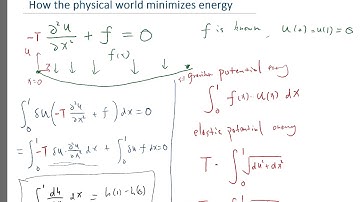 How the physical world minimizes energy
-T ∂²u/∂x² + f = 0
f is known, u(0)=u(1)=0
u
x
x=0
f(x)
∫₀¹ δu(-T ∂²u/∂x² + f) dx = 0
= ∫₀¹ -T δu ∂²u/∂x² dx + ∫₀¹ δu f dx = 0
∫₀¹ dh/dx dx = h(1) - h(0)
potential energy
∫₀¹ f(x) · u(x) dx
elastic potential energy
T · ∫₀¹ √(du²+dx²)